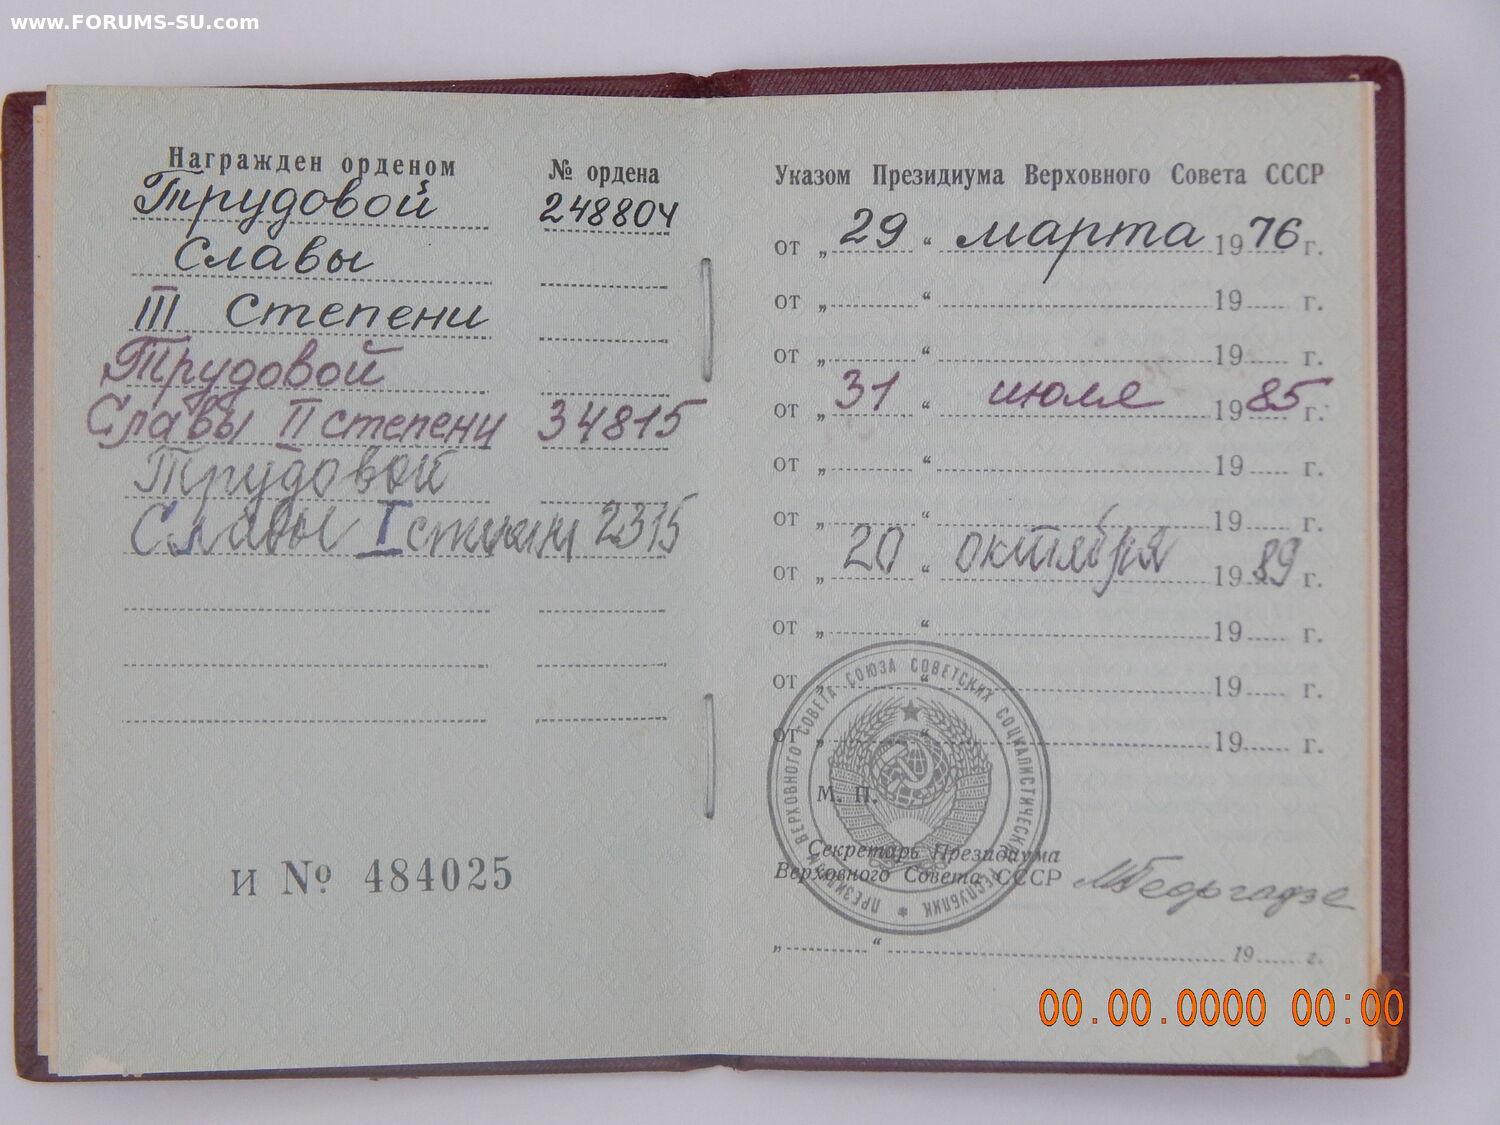 www.FORUMS-SU.com
Награжден орденом
№ ордена
Трудовой
248804
Славы
III Степени
Трудовой
Славы II степени
34815
Трудовой
Славы I степени
2315
И № 484025
Указом Президиума Верховного Совета СССР
от „ 29 “ марта 1976 г.
от „ “ 19 г.
от „ “ 19 г.
от „ 31 “ июля 1985 г.
от „ “ 19 г.
от „ “ 19 г.
от „ 20 “ октября 1989 г.
от „ “ 19 г.
от „ “ 19 г.
от „ “ 19 г.
ПРЕЗИДИУМ ВЕРХОВНОГО СОВЕТА СОЮЗА СОВЕТСКИХ СОЦИАЛИСТИЧЕСКИХ РЕСПУБЛИК
М. П.
Секретарь Президиума
Верховного Совета СССР
МГеоргадзе
„ “ 19 г.
00.00.0000 00:00